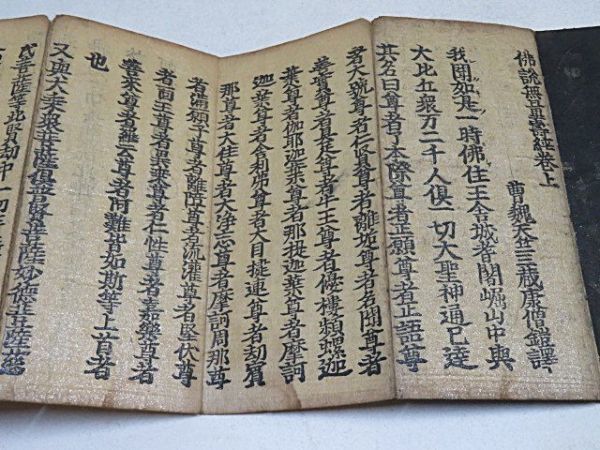 佛說無量壽經卷上
曹魏天竺三藏康僧鎧譯
我聞如是一時佛住王舍城耆闍崛山中與
大比丘衆万二千人俱一切大聖神通已達
其名曰尊者了本際尊者正願尊者正語尊
者大號尊者仁賢尊者離垢尊者名聞尊者
善實尊者具足尊者牛王尊者優樓頻螺迦
葉尊者伽耶迦葉尊者那提迦葉尊者摩訶
迦葉尊者舍利弗尊者大目揵連尊者劫賓
那尊者大住尊者大淨志尊者摩訶周那尊
者滿願子尊者離障尊者流灌尊者堅伏尊
者面王尊者異乘尊者仁性尊者嘉樂尊者
善來尊者羅云尊者阿難皆如斯等上首者
也
又與大乘衆菩薩俱普賢菩薩妙德菩薩慈
氏菩薩等此賢劫中一切